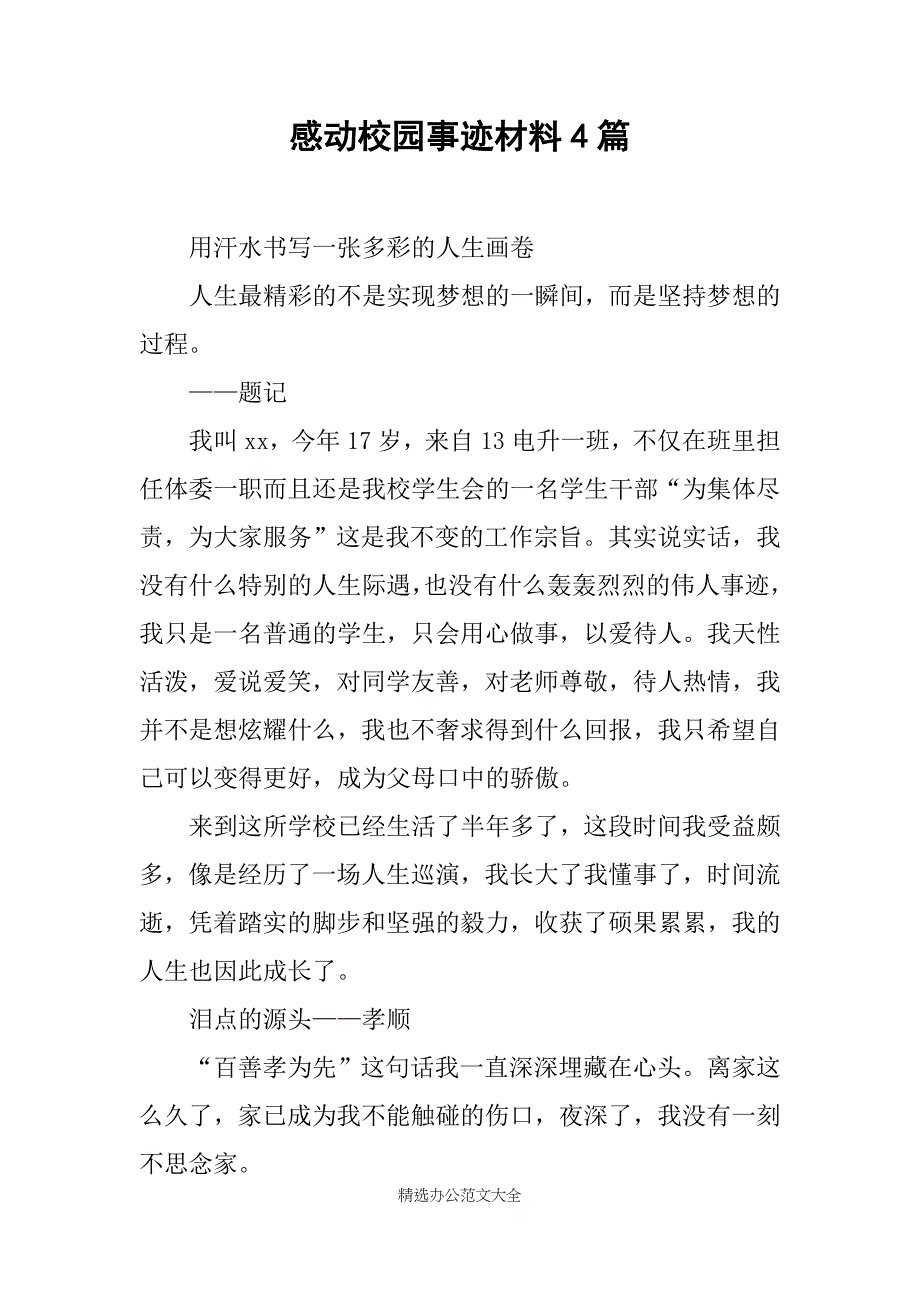 感动校园事迹材料4篇
用汗水书写一张多彩的人生画卷
人生最精彩的不是实现梦想的一瞬间，而是坚持梦想的
过程。
——题记
我叫xx，今年17岁，来自13电升一班，不仅在班里担
任体委一职而且还是我校学生会的一名学生干部“为集体尽
责，为大家服务”这是我不变的工作宗旨。其实说实话，我
没有什么特别的人生际遇，也没有什么轰轰烈烈的伟人事迹，
我只是一名普通的学生，只会用心做事，以爱待人。我天性
活泼，爱说爱笑，对同学友善，对老师尊敬，待人热情，我
并不是想炫耀什么，我也不奢求得到什么回报，我只希望自
己可以变得更好，成为父母口中的骄傲。
来到这所学校已经生活了半年多了，这段时间我受益颇
多，像是经历了一场人生巡演，我长大了我懂事了，时间流
逝，凭着踏实的脚步和坚强的毅力，收获了硕果累累，我的
人生也因此成长了。
泪点的源头——孝顺
“百善孝为先”这句话我一直深深埋藏在心头。离家这
么久了，家已成为我不能触碰的伤口，夜深了，我没有一刻
不思念家。
精选办公范文大全